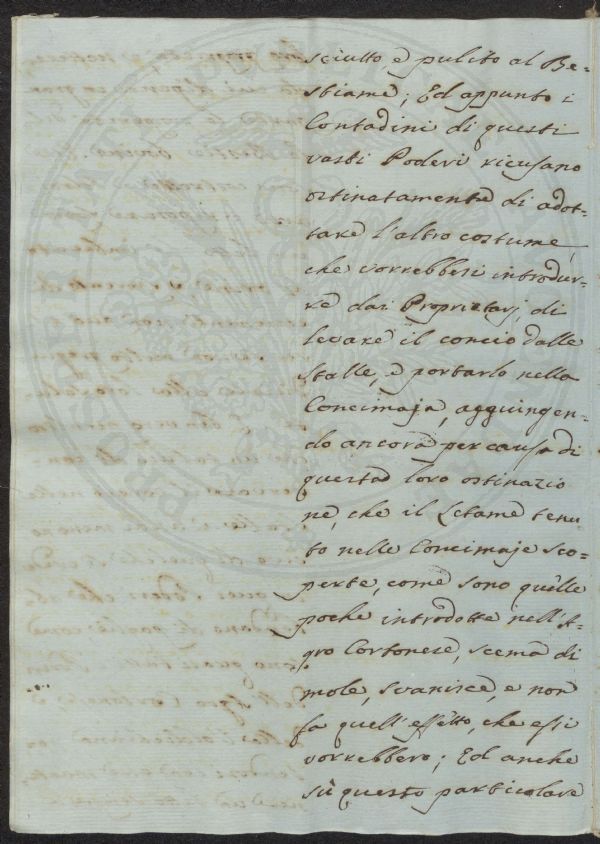 sciutto, e pulito al Be-
stiame; Ed appunto i
Contadini di questi
vasti Poderi ricusano
ostinatamente di adot-
tare l'altro costume,
che vorrebbesi introdur-
re dai Proprietarj, di
levare il concio dalle
Stalle, e portarlo nella
Concimaja, aggiungen-
do ancora per causa di
questa loro ostinazio
ne, che il Letame tenu-
to nelle Concimaje sco-
perte, come sono quelle
poche introdotte nell'A-
gro Cortonese, scema di
mole, svanisce, e non
fa quell'effetto, che essi
vorrebbero; Ed anche
sù questo particolare